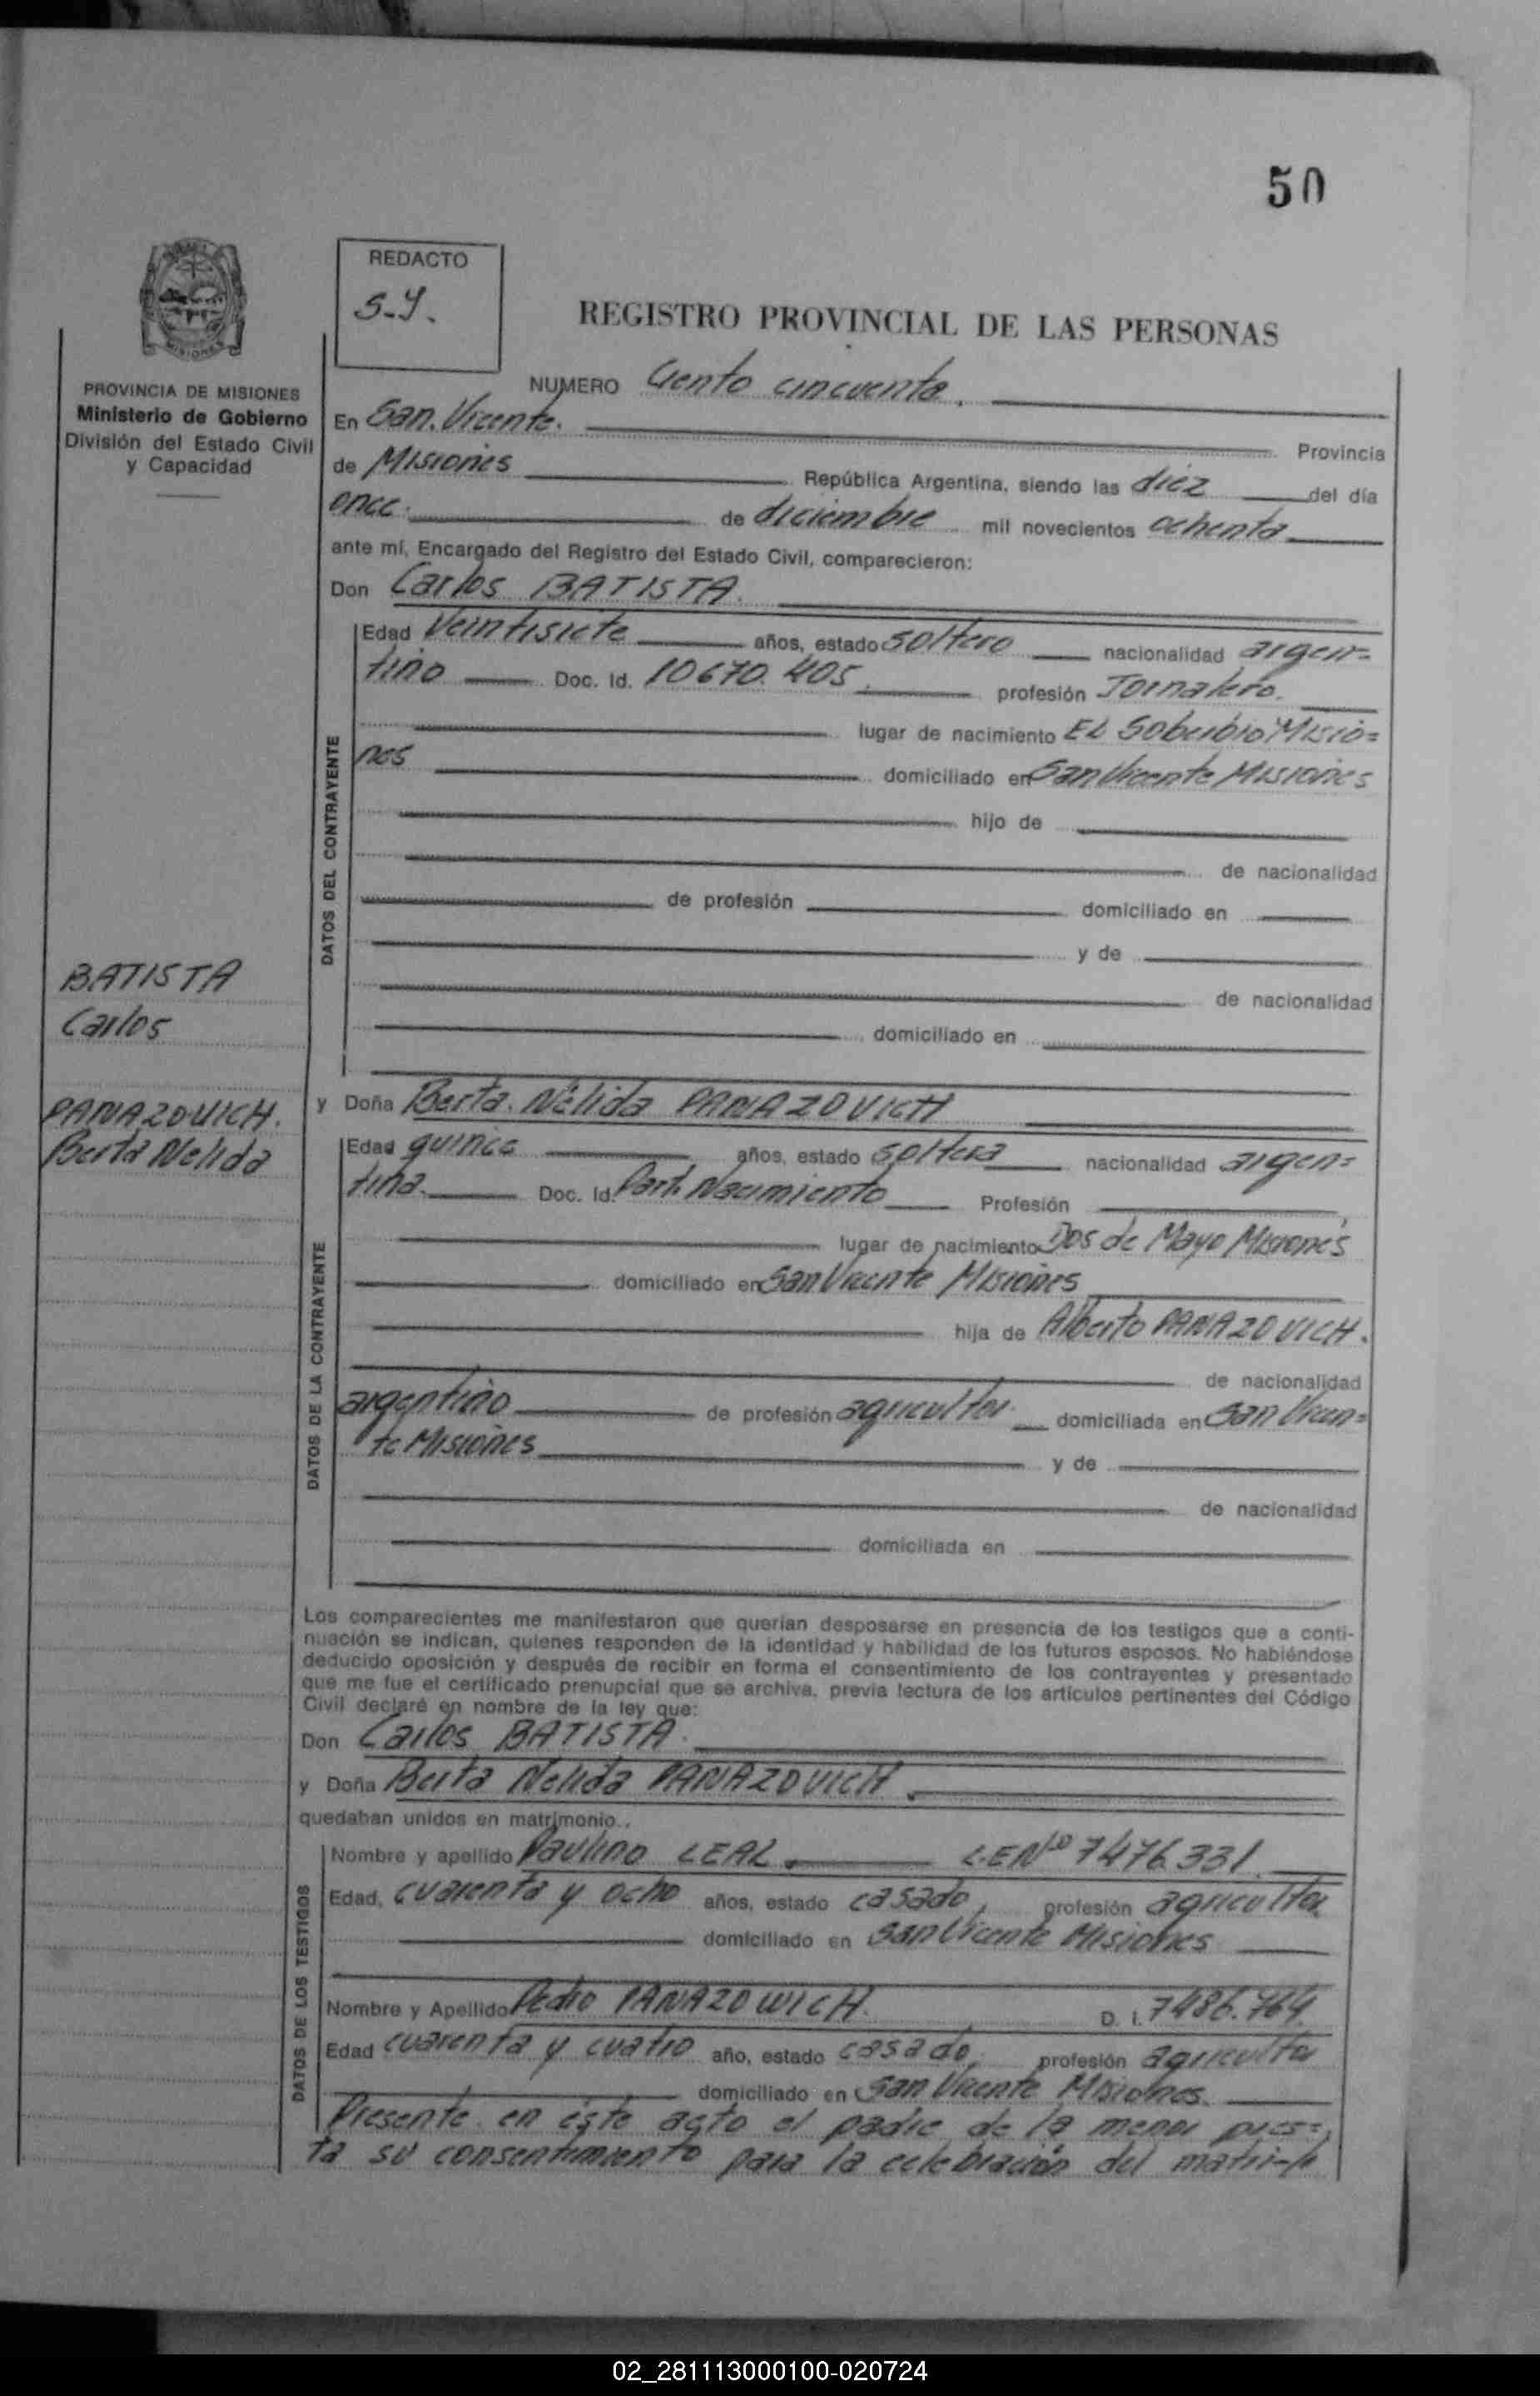 50
REDACTO
S-Y.
REGISTRO PROVINCIAL DE LAS PERSONAS
PROVINCIA DE MISIONES
Ministerio de Gobierno
División del Estado Civil
y Capacidad
NUMERO Ciento cincuenta.
En San Vicente. Provincia
de Misiones República Argentina, siendo las diez del día
once. de diciembre mil novecientos ochenta
ante mí, Encargado del Registro del Estado Civil, comparecieron:
Don Carlos BATISTA.
DATOS DEL CONTRAYENTE
Edad Veintisiete años, estado soltero nacionalidad argen=
tino Doc. Id. 10670.405. profesión Jornalero.
lugar de nacimiento El Soberbio Misio=
nes domiciliado en San Vicente Misiones
hijo de
de nacionalidad
de profesión domiciliado en
y de
de nacionalidad
domiciliado en
BATISTA
Carlos
PANAZOVICH.
Berta Nelida
y Doña Berta Nélida PANAZOVICH
DATOS DE LA CONTRAYENTE
Edad quince años, estado soltera nacionalidad argen=
tina. Doc. Id. Part. Nacimiento Profesión
lugar de nacimiento Dos de Mayo Misiones
domiciliado en San Vicente Misiones
hija de Alberto PANAZOVICH.
de nacionalidad
argentino de profesión agricultor domiciliada en San Vicen=
te Misiones y de
de nacionalidad
domiciliada en
Los comparecientes me manifestaron que querían desposarse en presencia de los testigos que a conti-
nuación se indican, quienes responden de la identidad y habilidad de los futuros esposos. No habiéndose
deducido oposición y después de recibir en forma el consentimiento de los contrayentes y presentado
que me fue el certificado prenupcial que se archiva, previa lectura de los artículos pertinentes del Código
Civil declaré en nombre de la ley que:
Don Carlos BATISTA.
y Doña Berta Nelida PANAZOVICH.
quedaban unidos en matrimonio.
DATOS DE LOS TESTIGOS
Nombre y apellido Paulino LEAL. L.E Nº 7476.331.
Edad, cuarenta y ocho años, estado casado, profesión agricultor
domiciliado en San Vicente Misiones
Nombre y Apellido Pedro PANAZOWICH. D. I. 7486.764.
Edad cuarenta y cuatro año, estado casado, profesión agricultor
domiciliado en San Vicente Misiones.
Presente en éste acto el padre de la menor pres=
ta su consentimiento para la celebración del matri-//
02_281113000100-020724